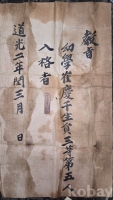 敎旨
幼學崔慶千生員三等第五人
入格者
道光二年閏三月 日
kobay